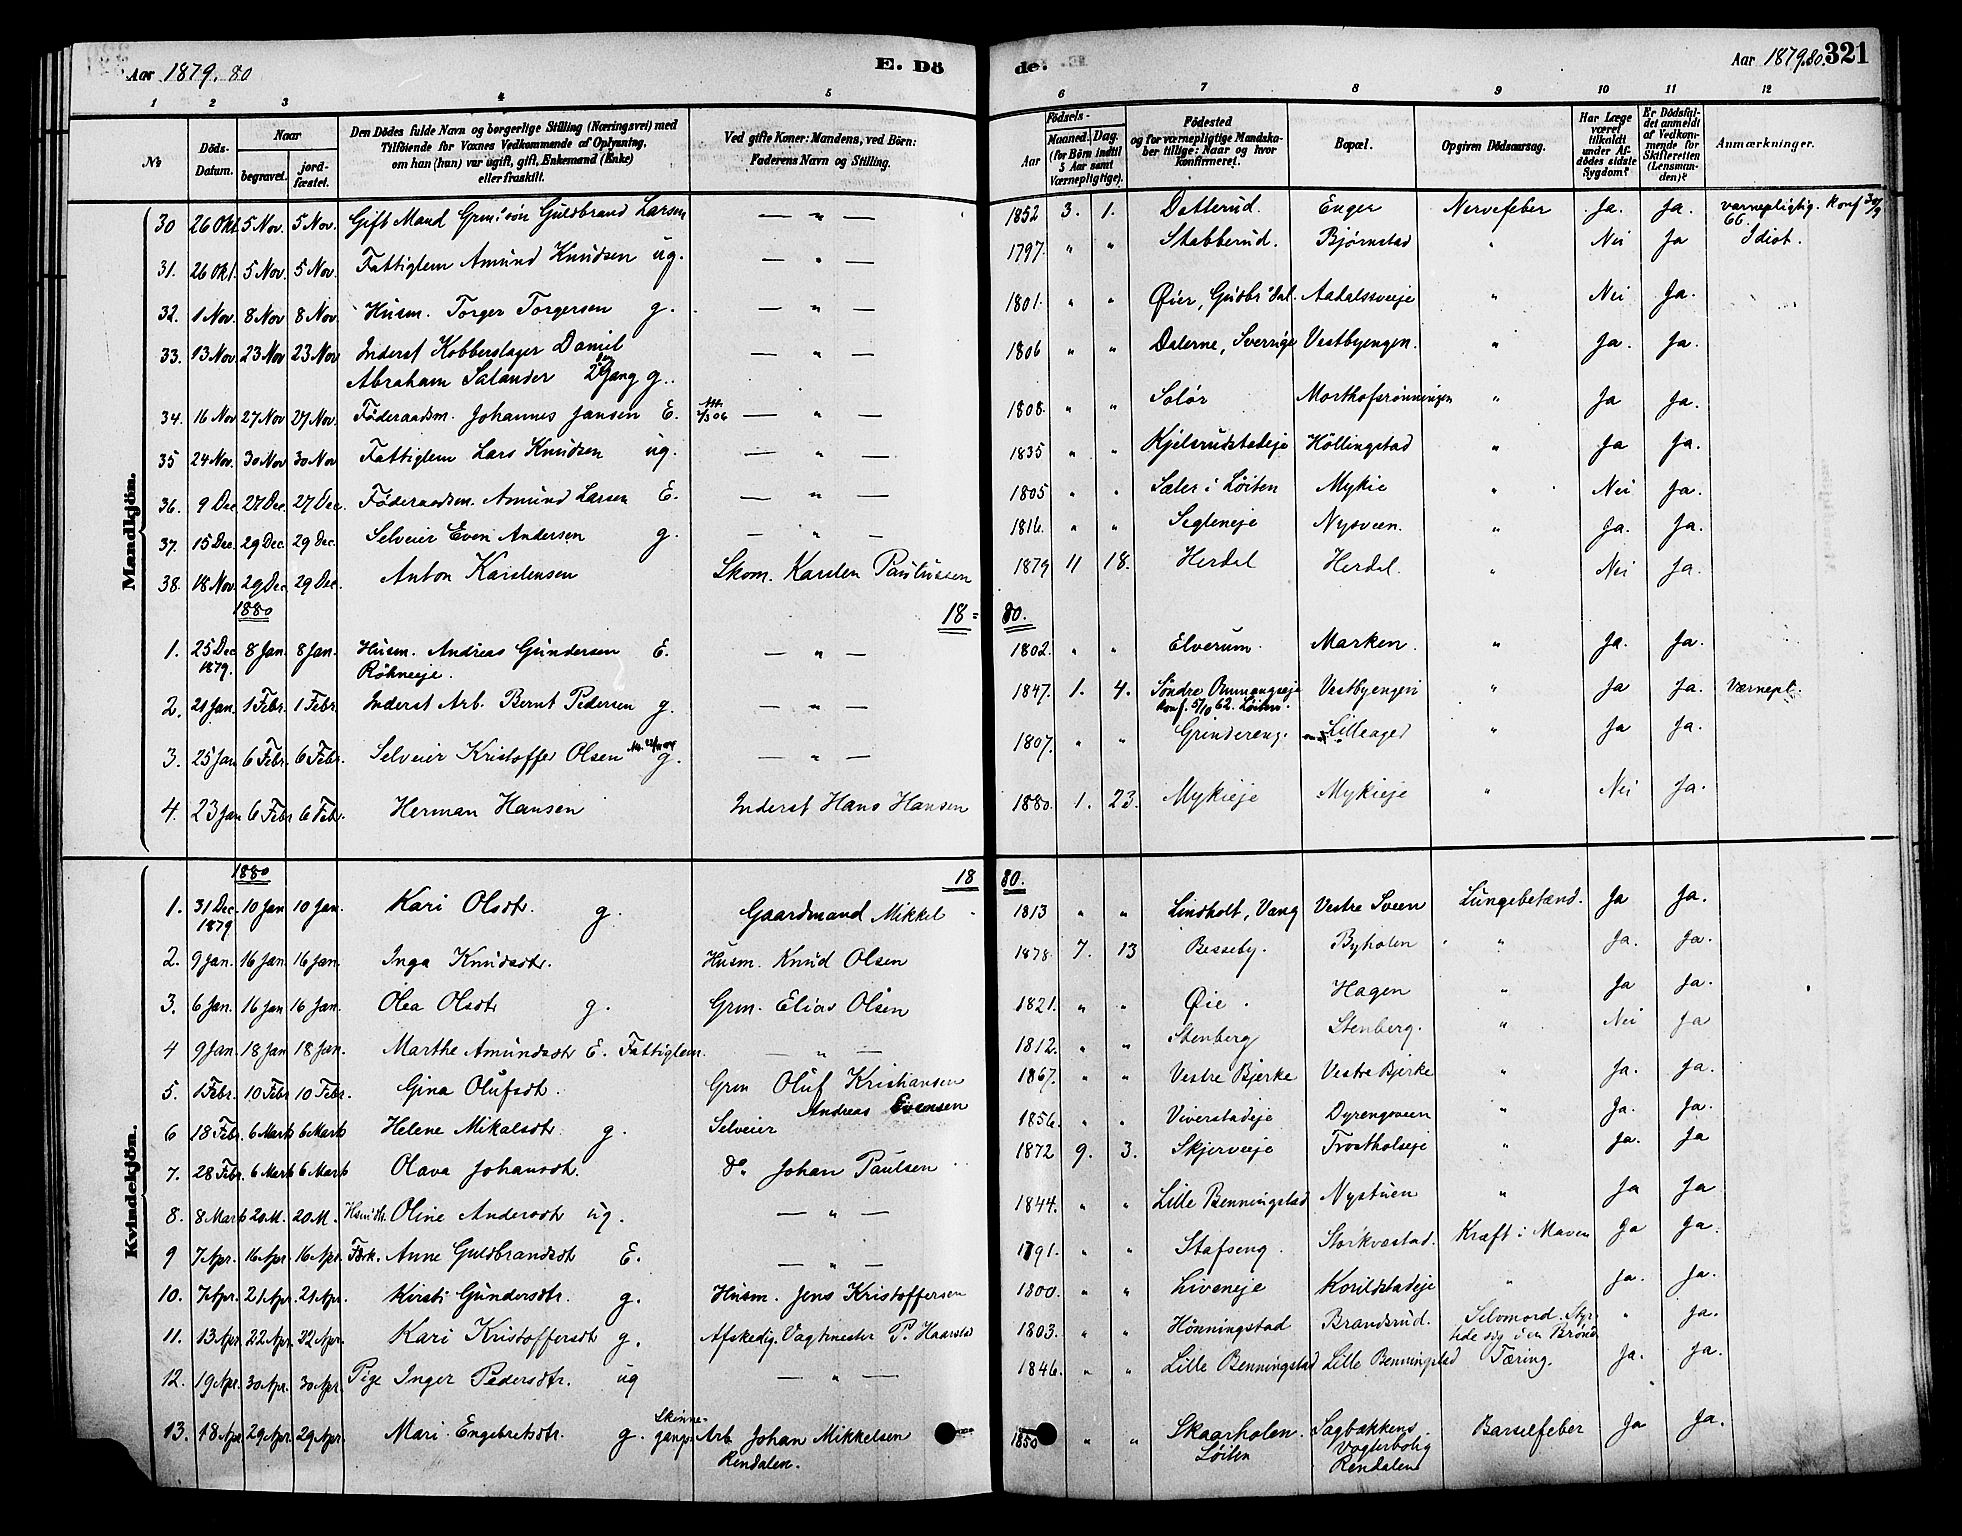 Aar 1879. 80
E. Dö
de.
Aar 1879.80. 321
1 2 3 4 5 6 7 8 9 10 11 12
No
Döds-Datum.
Naar
begravet.
jordfæstet.
Den Dödes fulde Navn og borgerlige Stilling (Næringsvei) med
Tilföiende for Voxnes Vedkommende af Oplysning,
om han (hun) var ugift, gift, Enkemand (Enke)
eller fraskilt.
Ved gifte Koner: Mandens, ved Börn:
Faderens Navn og Stilling.
Födsels-
Aar
Maaned. Dag.
(for Börn indtil
5 Aar samt
Værnepligtige).
Födested
og for værnepligtige Mandskaber
tillige: Naar og hvor
konfirmeret.
Bopæl.
Opgiven Dödsaarsag.
Har Læge
været
tilkaldt
under Afdödes
sidste
Sygdom?
Er Dödsfaldet
anmeldt
af Vedkommende
for
Skifteretten
(Lensmanden)?
Anmærkninger.
Mandkjön.
30 26 Okt. 5 Nov. 5 Nov. Gift Mand Grm.sön Guldbrand Larsen — " — 1852 3. 1. Datterud. Enger Nervefeber Ja. Ja. værnepligtig. Konf 30/9 66.
31. 26 Okt. 5 Nov. 5 Nov. Fattiglem Amund Knudsen ug. — " — 1797. " " Stabberud. Bjørnstad " Nei Ja Idiot.
32. 1 Nov. 8 Nov 8 Nov. Husm. Torger Torgersen g. — " — 1801. " " Øier, Gudbr.dal. Aadalsveie " Nei Ja.
33. 13 Nov 23 Nov 23 Nov Inderst Kobberslager Daniel — " — 1806 " " Dalerne, Sverrige Vestbyengen. " Ja. Ja.
Abraham Salander 2den Gang g.
34. 16 Nov 27 Nov 27 Nov. Føderaadsm. Johannes Jansen E. — " — 1808. " " Solør Morthofsrønningen " Ja Ja.
35 24 Nov. 30 Nov 30 Nov Fattiglem Lars Knudsen ug. — " — 1835 " " Kjelsrudstadeje Höllingstad " Ja Ja.
36. 9 Dec 27 Dec. 27 Dec. Føderaadsm. Amund Larsen E. — " — 1805 " " Sæler i Løiten Mykie " Nei Ja.
37. 15 Dec. 29 Dec. 29 Dec. Selveier Even Andersen g. — " — 1816. " " Segleneje Nysveen. " Ja. Ja.
38. 18 Nov. 29 Dec. 29 Dec. Anton Karstensen Skom. Karsten Paulussen 1879 11 18. Herdal Herdal. " Nei Ja.
1880 18 = 80.
1. 25 Dec 1879. 8 Jan. 8 Jan. Husm. Andreas Gundersen E. — " — 1802. " " Elverum. Marken. " Ja. Ja.
Røhneeje.
2. 21 Jan. 1 Febr. 1 Febr. Inderst Arb. Bernt Pedersen g. — " — 1847. 1. 4. Söndre Ommangseje Vestbyengen " Ja Ja. Værnept.
konf. 5/10 62. Løiten.
3. 25 Jan 6 Febr. 6 Febr. Selveier Kristoffer Olsen g. — " — 1807. " " Grindereng. Lilleaged " Ja Ja.
4. 23 Jan 6 Febr 6 Febr. Herman Hansen Inderst Hans Hansen 1880. 1. 23. Mykieje Mykieje " Nei Ja.
Kvindekjön.
1880 18 80.
1. 31 Dec. 1879 10 Jan 10 Jan. Kari Olsdtr. g. Gaardmand Mikkel 1813 " " Lindholt, Vang Vestre Sveen Lungebetænd. Ja Ja.
2. 9 Jan. 16 Jan. 16 Jan. Inga Knudsdtr. Husm. Knud Olsen 1878. 7. 13 Besseby. Byholen " Ja. Ja.
3. 6 Jan. 16 Jan 16 Jan. Olea Olsdtr g. Grm. Elias Olsen 1821. " " Øie. Hagen " Ja Ja.
4 9 Jan. 18 Jan 18 Jan. Marthe Amundsdtr E. Fattiglem. — " — 1812. " " Stenberg Stenberg. " Nei Ja
5. 1 Febr. 10 Febr 10 Febr. Gina Olufsdt. Grm Oluf Kristiansen 1867. " " Vestre Bjerke Vestre Bjerke " Ja. Ja.
6 18 Febr. 6 Marts 6 Marts Helene Mikalsdtr. g. Selveier Andreas Evensen 1856. " " Viverstadeje Dyrengsveen " Ja. Ja.
7. 28 Febr. 6 Marts 6 Marts Olava Johansdtr. Do. Johan Paulsen 1872 9. 3. Skjerveeje Frostholseje " Ja. Ja
8. 8 Marts 20 M. 20 M. Oline Andersdt ug. — " — 1844. " " Lille Benningstad Nystuen " Ja Ja
9 7 Apr. 16 Apr. 16 Apr. Anne Guldbrandsdt E. — " — 1791. " " Stafseng. Storkvæstad. Kræft i Maven Ja Ja.
10. 7 Apr. 21 Apr. 21 Apr. Kirsti Gundersdtr. g. Husm. Jens Kristoffersen 1800. " " Liveneje Korildstadeje " Ja. Ja.
11. 13 Apr 22 Apr. 22 Apr. Kari Kristoffersdt g. Afskedig. Vagtmester P. Haarstad 1803. " " Hönningstad Brandsrud. Selvmord. Styr-
tede sig i en Brönd " Ja.
12. 19 Apr. 30 Apr. 30 Apr. Pige Inger Pedersdtr. ug — " — 1846. " " Lille Benningstad Lille Benningstad Tæring. Ja. Ja.
13. 18 Apr 29 Apr. 29 Apr. Mari Engebretsdtr. g. Arb. Johan Mikkelsen 1850 " " Skaarholen. Sagbakkens Barselfeber Ja Ja.
Rendalen. Løiten Vogterbolig
Rendalen